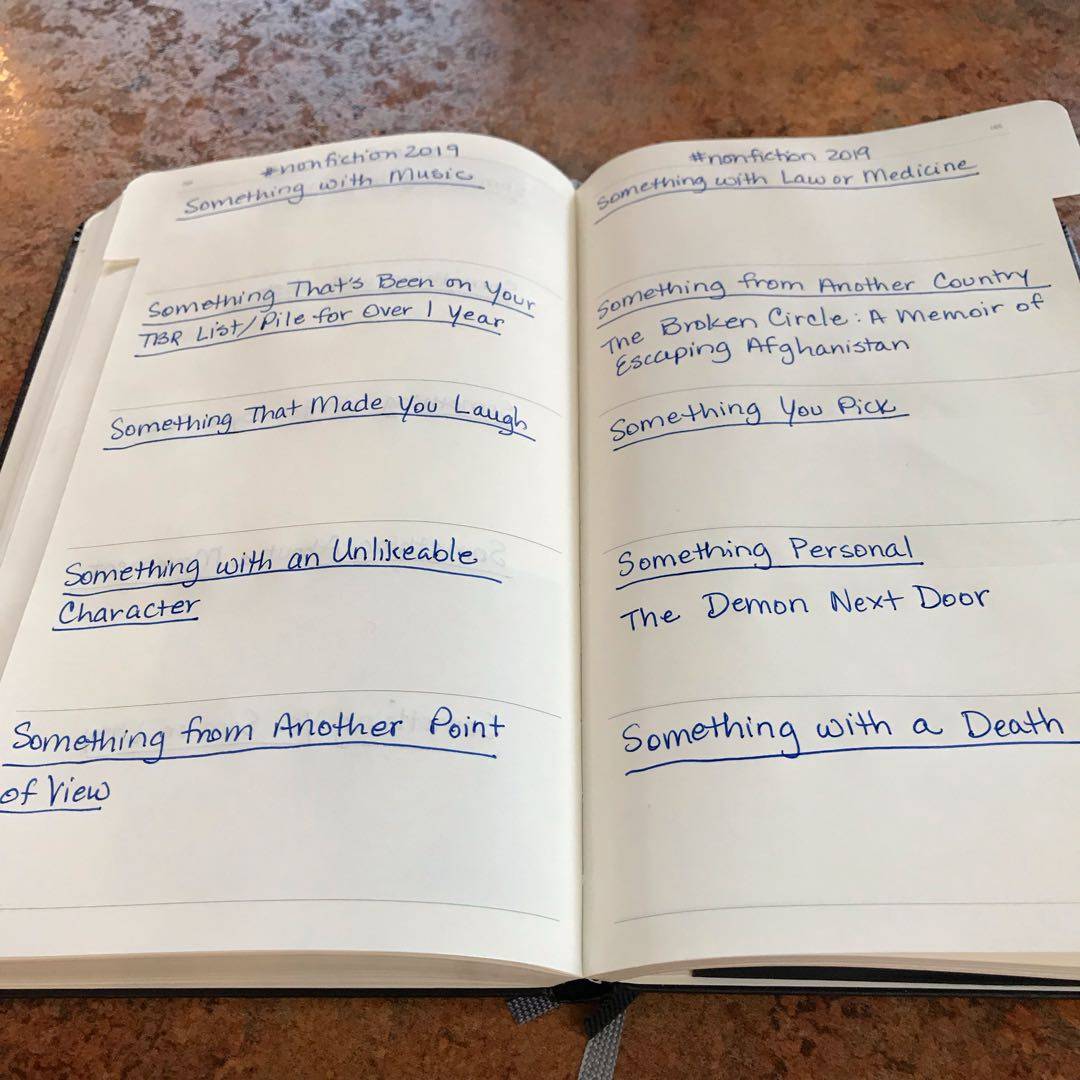 #nonfiction2019
Something with Music
Something That's Been on Your
TBR List/Pile for Over 1 Year
Something That Made You Laugh
Something with an Unlikeable
Character
Something from Another Point
of View
#nonfiction 2019
Something with Law or Medicine
Something from Another Country
The Broken Circle: A Memoir of
Escaping Afghanistan
Something You Pick
Something Personal
The Demon Next Door
Something with a Death